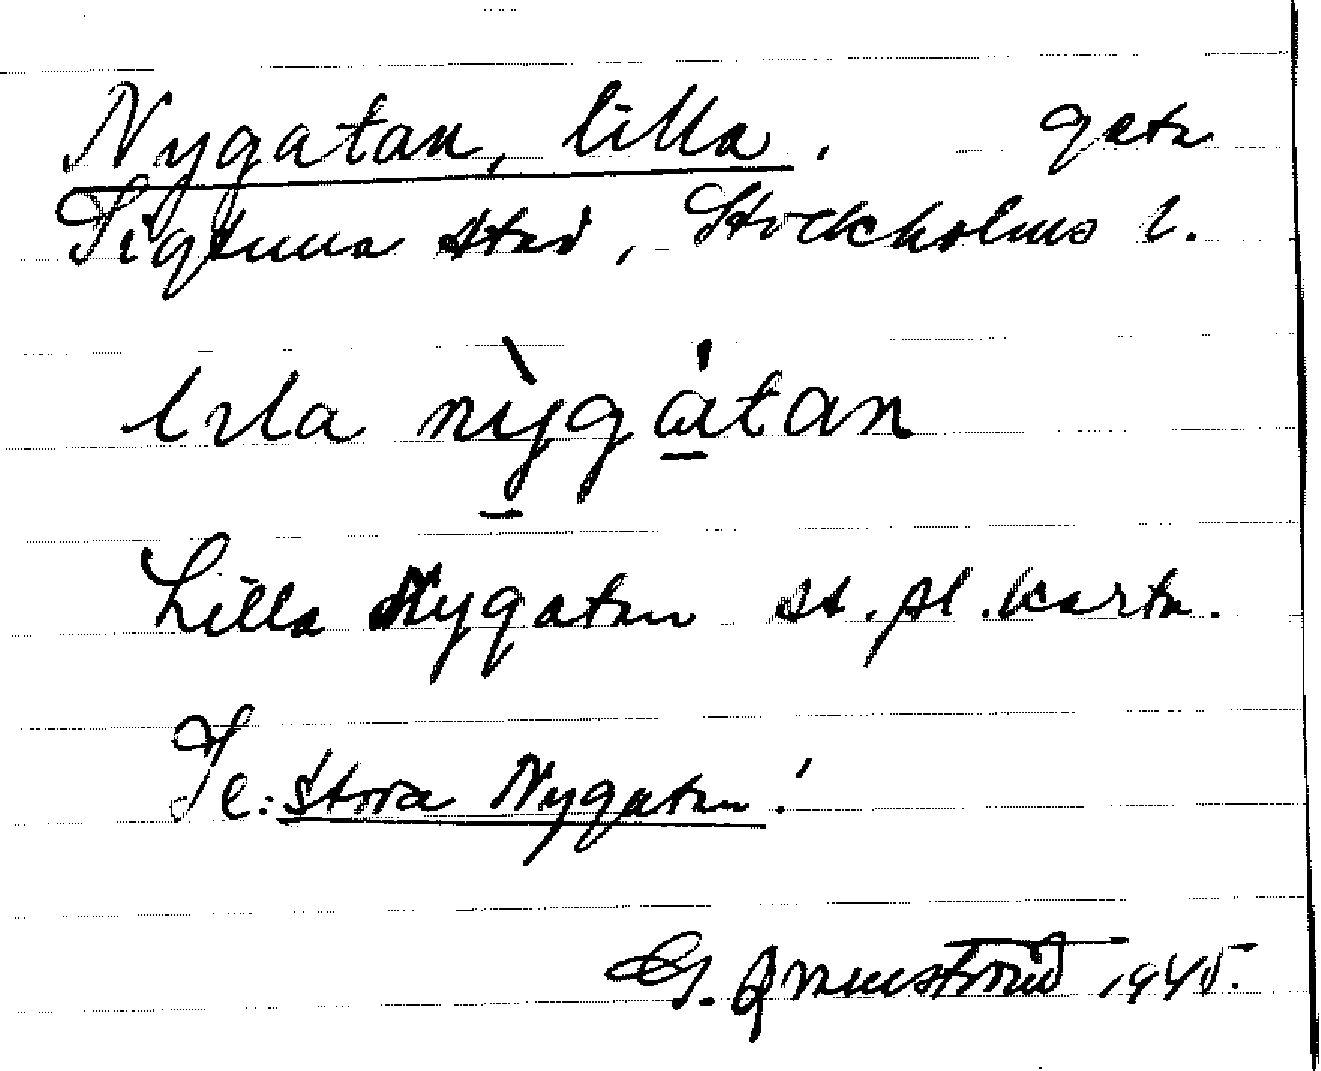 Nygatan, lilla. gata
Sigtuna stad, Stockholms l.
nỳgátan
Lilla Nygatan st. pl. karta.
Se: Stora Nygatan!
G. 1945.